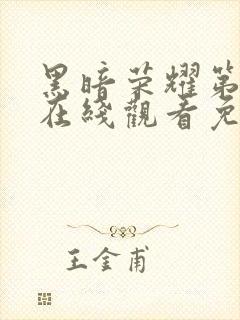 黑暗荣耀第
在线觀看免
王金甫